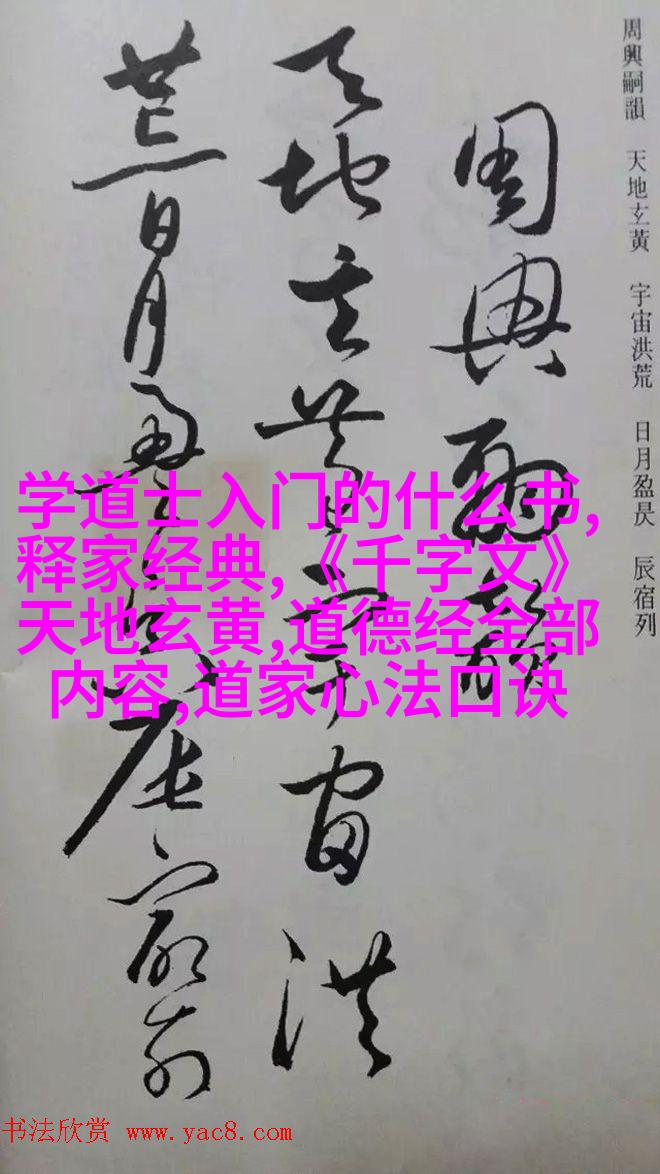 周興嗣韻 天地玄黃 宇宙洪荒 日月盈昃 辰宿列
周興嗣韻
天地玄黃宇宙洪
荒日月盈昃辰宿列
学道士入门的什么书,
释家经典,《千字文》
天地玄黄,道德经全部
内容,道家心法口诀
书法欣赏 www.yac8.com